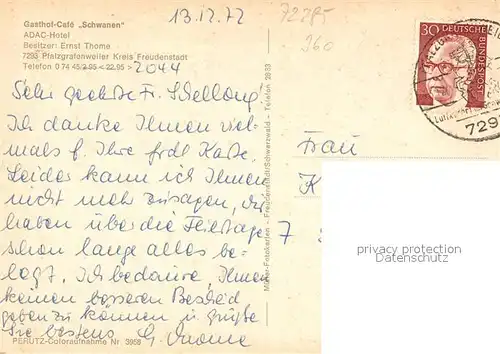 13.12.72
72285
360
Gasthof-Café „Schwanen"
ADAC-Hotel
Besitzer: Ernst Thome
7293 Pfalzgrafenweiler Kreis Freudenstadt
Telefon 0 74 45/2 95 <22 95> 2044
Sehr geehrte Fr. Schellong!
Ich danke Ihnen viel-
mals f. Ihre frdl Karte.
Leider kann ich Ihnen
nicht mehr zusagen, wir
haben über die Feiertage
schon lange alles be-
legt. Ich bedaure, Ihnen
keinen besseren Bescheid
geben zu können u. grüße
Sie bestens E. Thome
PERUTZ-Coloraufnahme Nr. 3958
Foto-karten - Freudenstadt/Schwarzwald - Telefon 28 83
30
DEUTSCHE BUNDESPOST
Luftkurort
729
Frau
K
7
privacy protection
(Datenschutz)